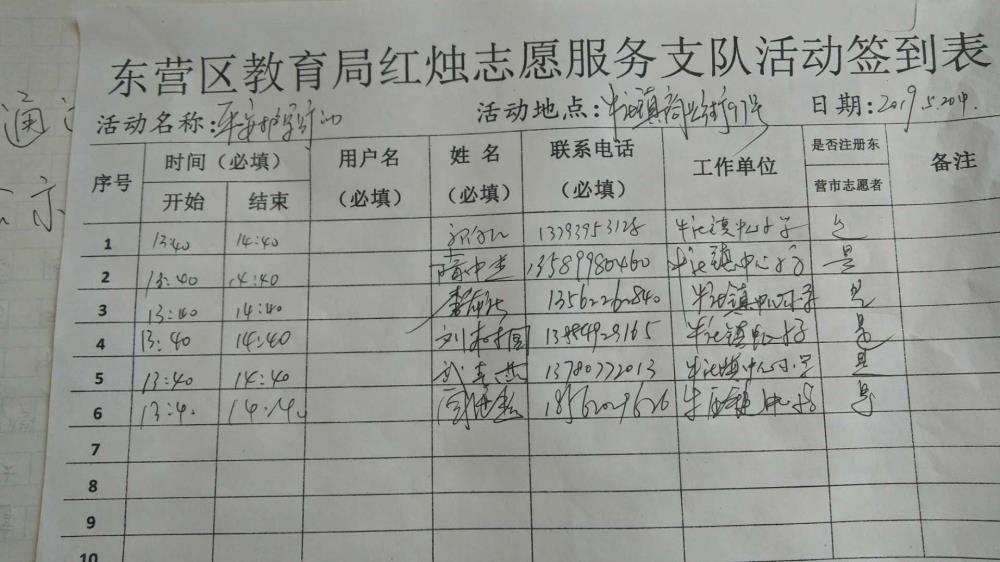 东营区教育局红烛志愿服务支队活动签到表
活动名称: 平安护学行动 活动地点: 牛庄镇商业街97号 日期: 2019.5.20
序号 时间（必填） 用户名（必填） 姓名（必填） 联系电话（必填） 工作单位 是否注册东营市志愿者 备注
开始 结束
1 13:40 14:40 牛庄镇中心小学 是
2 13:40 14:40 13589980460 牛庄镇中心小学 是
3 13:40 14:40 13562262840 牛庄镇中心小学 是
4 13:40 14:40 刘树国 牛庄镇中心小学 是
5 13:40 14:40 武春燕 13780772013 牛庄镇中心小学 是
6 13:40 14:40 18562029626 牛庄镇中心小学 是
7
8
9
10
通
示